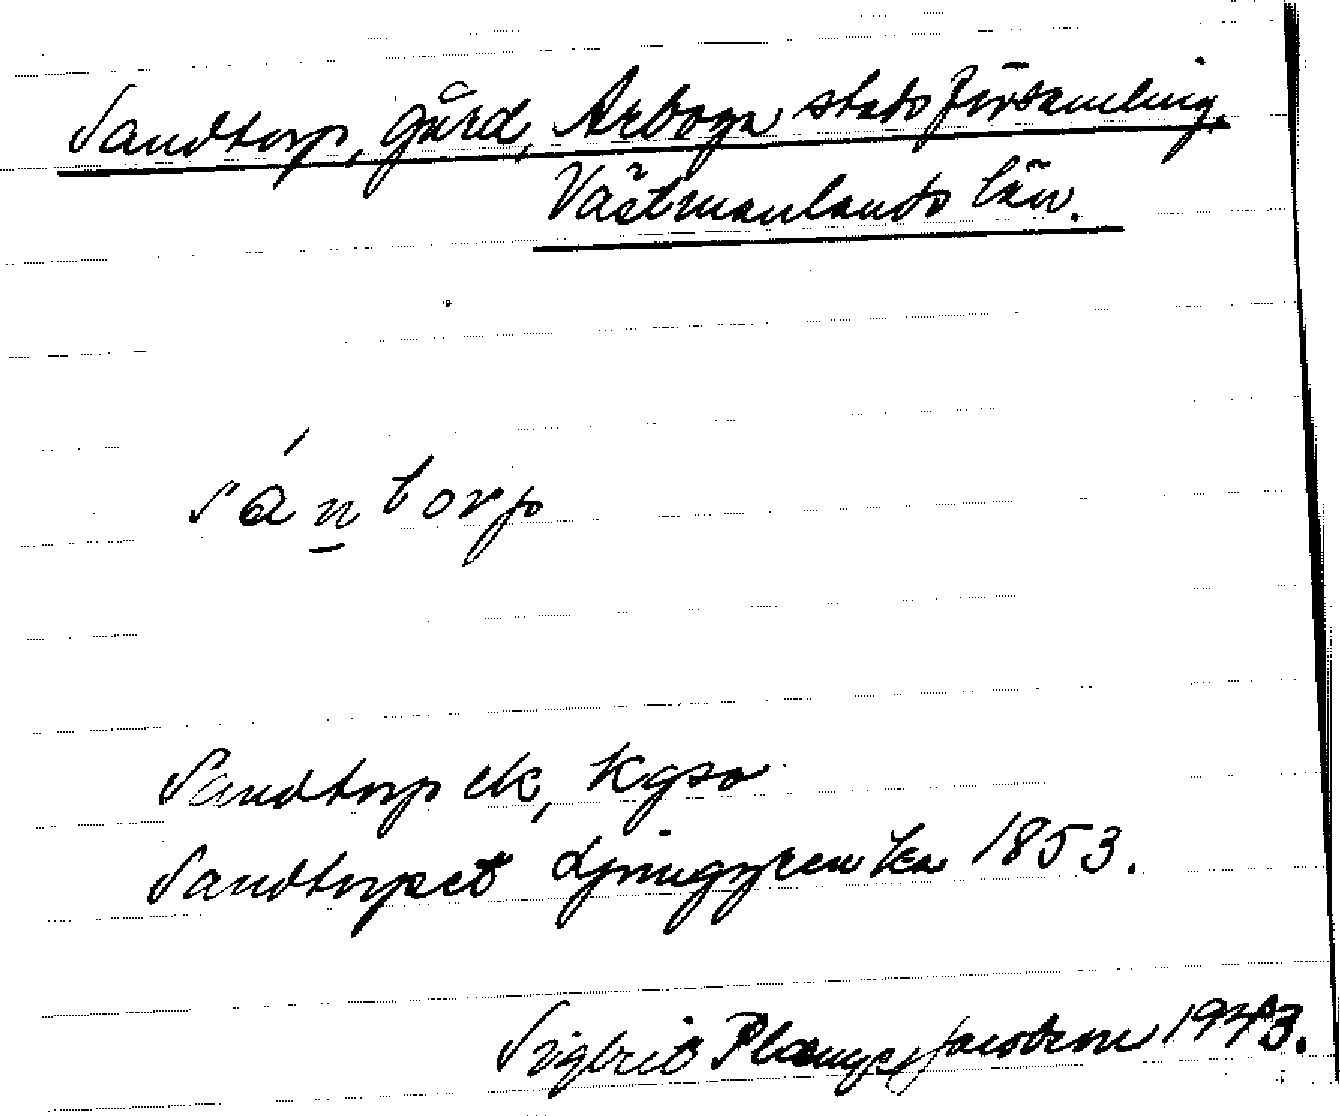 Sandtorp, gård, Arboga stadsförsamling,
Västmanlands län.
sán̲torp
Sandtorp ek, kgso
Sandtorpet Ljungqren ka 1853.
Sigbrit Plænge Jacobson 1943.